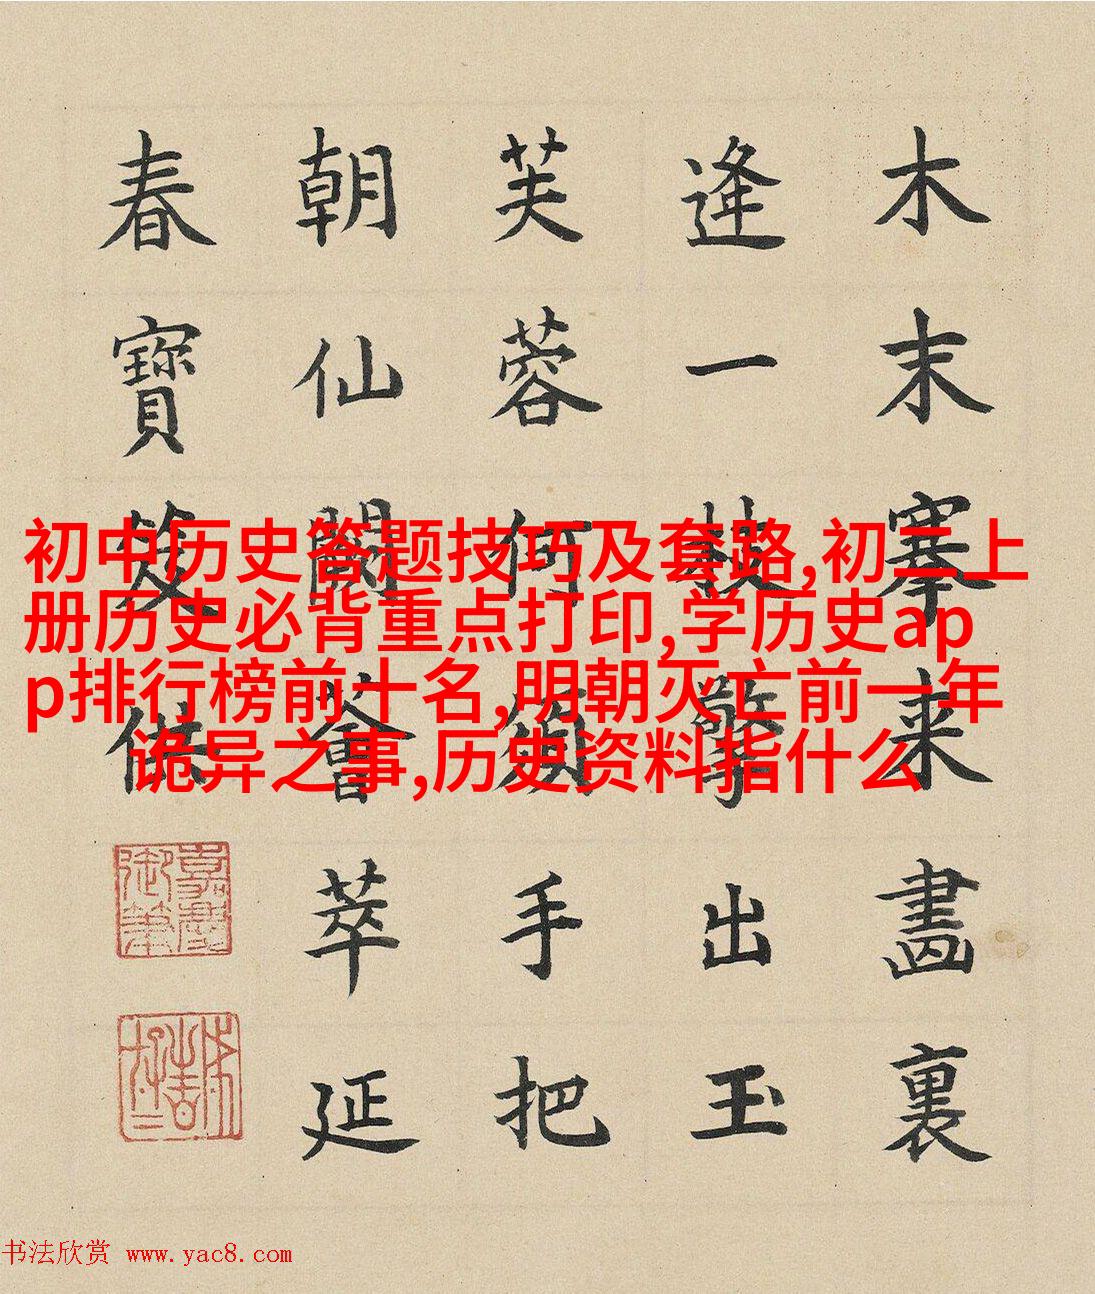 木末搴来畫裏
逢一枝擎出玉
芙蓉何須手把
朝仙闕薈萃延
春寶笈保
嘉慶御筆
初中历史答题技巧及套路,初二上
册历史必背重点打印,学历史ap
p排行榜前十名,明朝灭亡前一年
诡异之事,历史资料指什么
书法欣赏 www.yac8.com